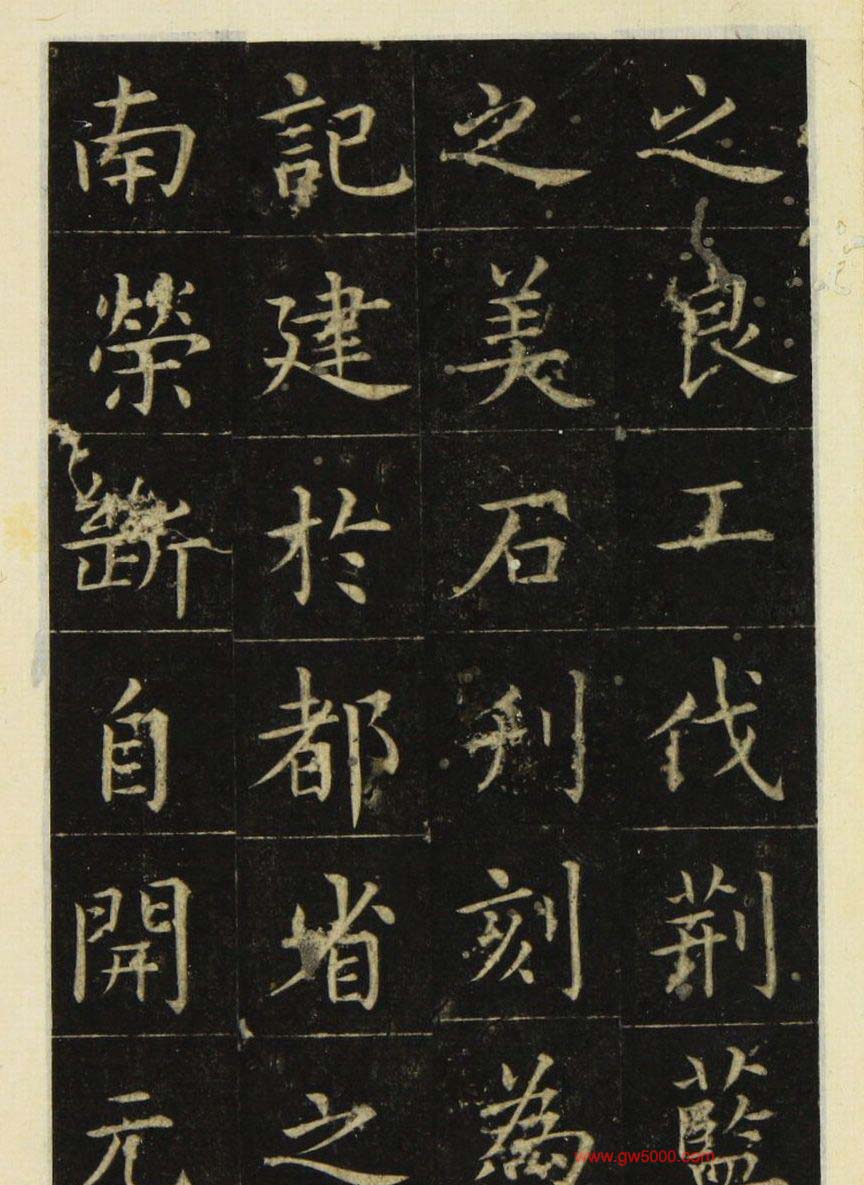 之良工伐荊藍
之美石刊刻為
記建於都省之
南榮斷自開元
www.gw5000.com